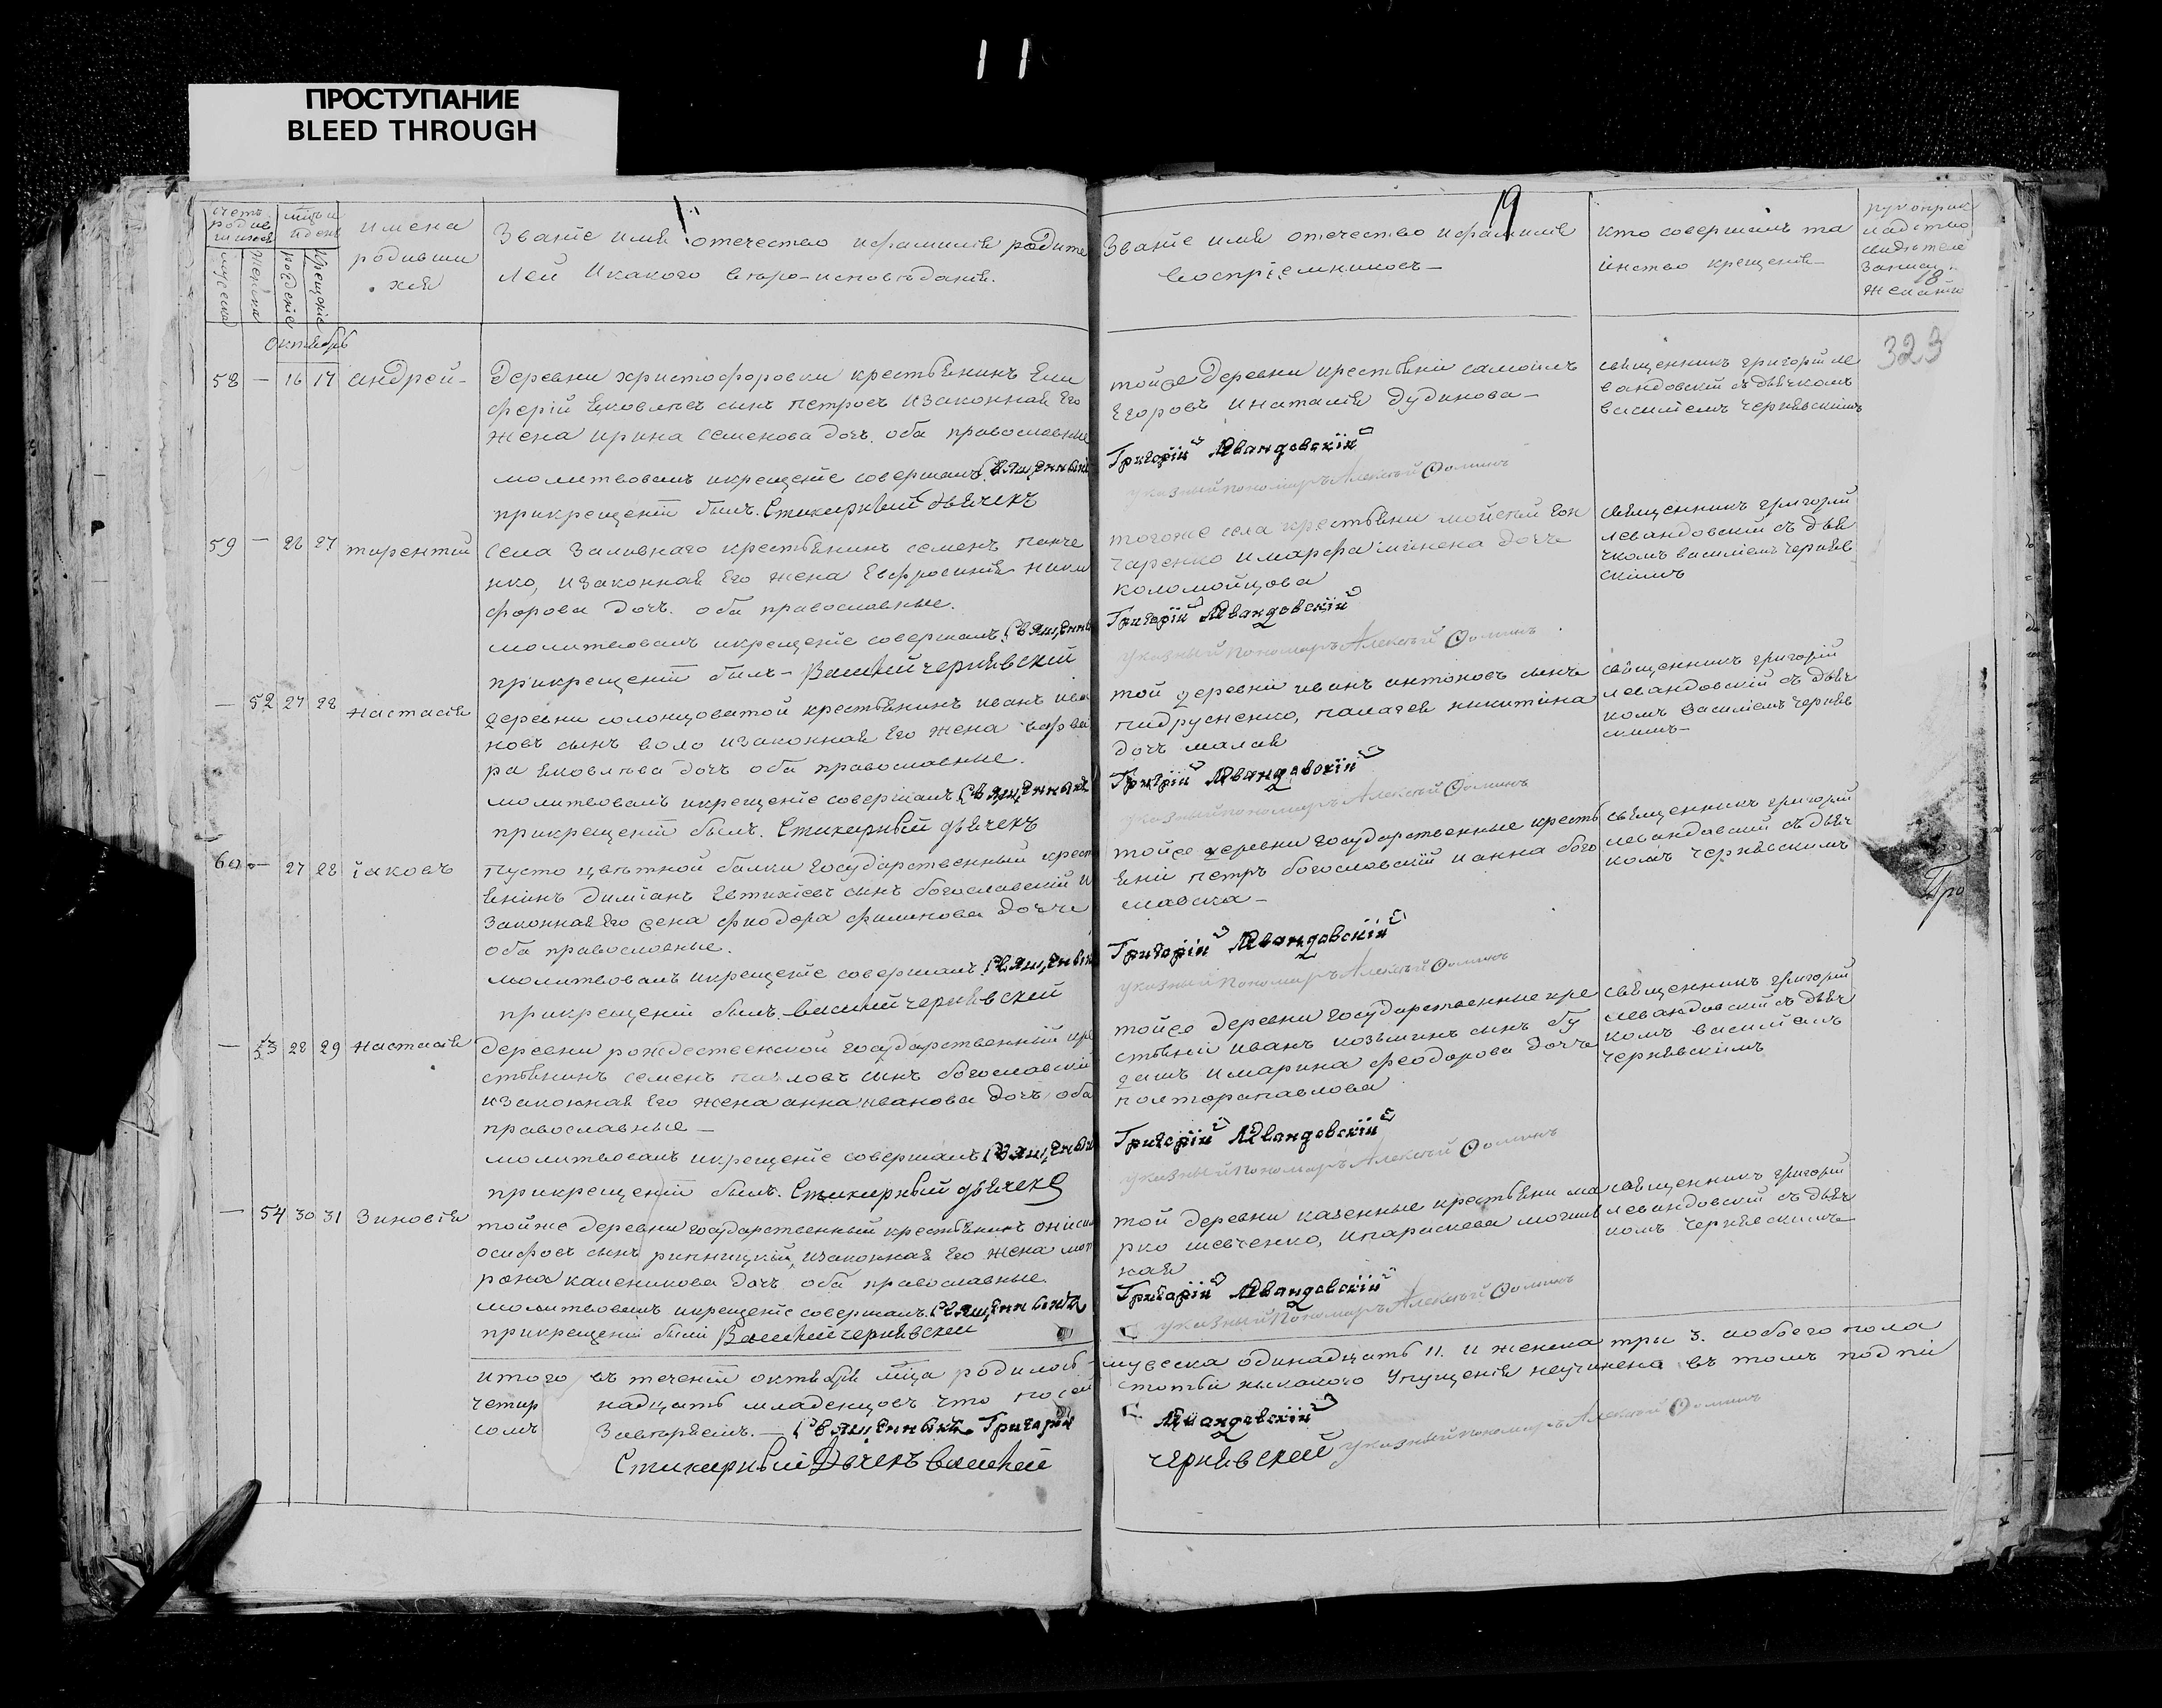 11
ПРОСТУПАНИЕ
BLEED THROUGH
19
18
323
счетъ родив шихсѧ
мцъ и день
имена
родивши
хсѧ
мужеска
женска
рождение
крещение
Званїе имѧ отечество ифамилїѧ родите
лей Икакого вѣро-исповѣданїѧ.
Званїе имѧ отечество ифамилїѧ
воспрїемниковъ —
кто совершалъ та
инство крещенїѧ —
рукоприк
ладство
свидѣтеле
записи
желанїю
Октѧбрь
58 — 16 17 андрей —
Деревни христофоровки крестьѧнинъ Ели
ферїй Ѧковлѣвъ сынъ петровъ Изаконнаѧ Его
жена ирина семенова дочъ. оба православные
молитвовалъ икрещенїе совершалъ. Свѧщенникъ
прикрещенїи былъ. Стихирный дьѧчекъ
тойже деревни крестьѧни самоилъ
Егоровъ Инаталїѧ дудикова —
Григорїй Левандовскїй
указный пономаръ Алексѣй Ѳоминъ
свѧщенникъ григорїй ле
вандовскїй съ дьѧчкомъ
василїемъ чернѧвскимъ
59 — 26 27 тарентїй
Села Заливнаго крестьѧнинъ семенъ панче
нко, изаконнаѧ Его жена Евфросинїѧ ники
форова дочъ. оба православные.
молитвовалъ икрещенїе совершалъ. Свѧщенникъ
прикрещенїи былъ — Василїй чернѧвскїй
тогоже села крестьѧни мойсѣй гон
чаренко имарфа минена дочь
коломойцова
Григорїй Левандовскїй
указный пономаръ Алексѣй Ѳоминъ
свѧщенникъ григорїй
левандовскїй съ дьѧ
чкомъ василїемъ чернѧв
скимъ
— 52 27 28 настасїѧ
деревни солонцоватой крестьѧнинъ иванъ ива
новъ сынъ воло изаконнаѧ Его жена
ра Ѧковлѣва дочъ оба православные.
молитвовалъ икрещенїе совершалъ Свѧщенникъ
прикрещенїи былъ. Стихирный дьѧчекъ
той деревнї иванъ антоновъ сынъ
пидрусненко, палагеѧ никитина
дочъ малаѧ
Григорїй Левандовскїй
указный пономаръ Алексѣй Ѳоминъ
свѧщенникъ григорїй
левандовскїй съ дьѧч
комъ василїемъ чернѧв
скимъ —
60 — 27 28 їаковъ
пусто цвѣтной балки государственный крест
ѧнинъ димїанъ Евтихїевъ сынъ богославскїй И
законнаѧ Его жена фиодора филипова дочь
оба православные.
молитвовалъ икрещенїе совершалъ. Свѧщенникъ
прикрещенїи былъ. василїй чернѧвскїй
тойже деревни государственные кресть
ѧнї петръ богословскїй ианна бого
славска —
Григорїй Левандовскїй
указный пономаръ Алексѣй Ѳоминъ
свѧщенникъ григорїй
левандовскїй съ дьѧч
комъ чернѧвскимъ
— 53 28 29 настасїѧ
деревни рождественской государственный кре
стьѧнинъ семенъ павловъ сынъ богославскїй
изаконнаѧ Его жена анна иванова дочъ оба
православные —
молитвовалъ икрещенїе совершалъ Свѧщенникъ
прикрещенїи былъ. Стихирный дьѧчекъ
тойже деревни государственные кре
стьѧнї иванъ козьминъ сынъ бу
дашъ имарина феодорова дочъ
полторапавлова
Григорїй Левандовскїй
указный пономаръ Алексѣй Ѳоминъ
свѧщенникъ григорїй
левандовскїй съ дьѧч
комъ василїемъ
чернѧвскимъ
— 54 30 31 Зиновїѧ
тойже деревни государственный крестьѧнинъ
осифовъ сынъ ринницкїй, изаконнаѧ Его жена мот
рона каленикова дочъ оба православные.
молитвовалъ икрещенїе совершалъ. Свѧщенникъ
прикрещенїи былї Василїй чернѧвскїй
той деревни казенные крестьѧни ма
рко шевченко, ипараскева могил
наѧ
Григорїй Левандовскїй
указный пономаръ Алексѣй Ѳоминъ
свѧщенникъ григорїй
левандовскїй съ дьѧч
комъ чернѧвскимъ
Про
итого въ теченїи октѧбрѧ мца родилось
мужеска одинадцать 11. И женска три 3. аобоего пола
четир надцать младенцовъ что по сей
статьи ныкакого упущенїѧ неучинена въ томъ подпи
сомъ Завѣрѧемъ. — Свѧщенникъ Григорїй Левандовскїй
Стихирный Дьѧчекъ василїй чернѧвскїй указный пономаръ Алексѣй Ѳоминъ